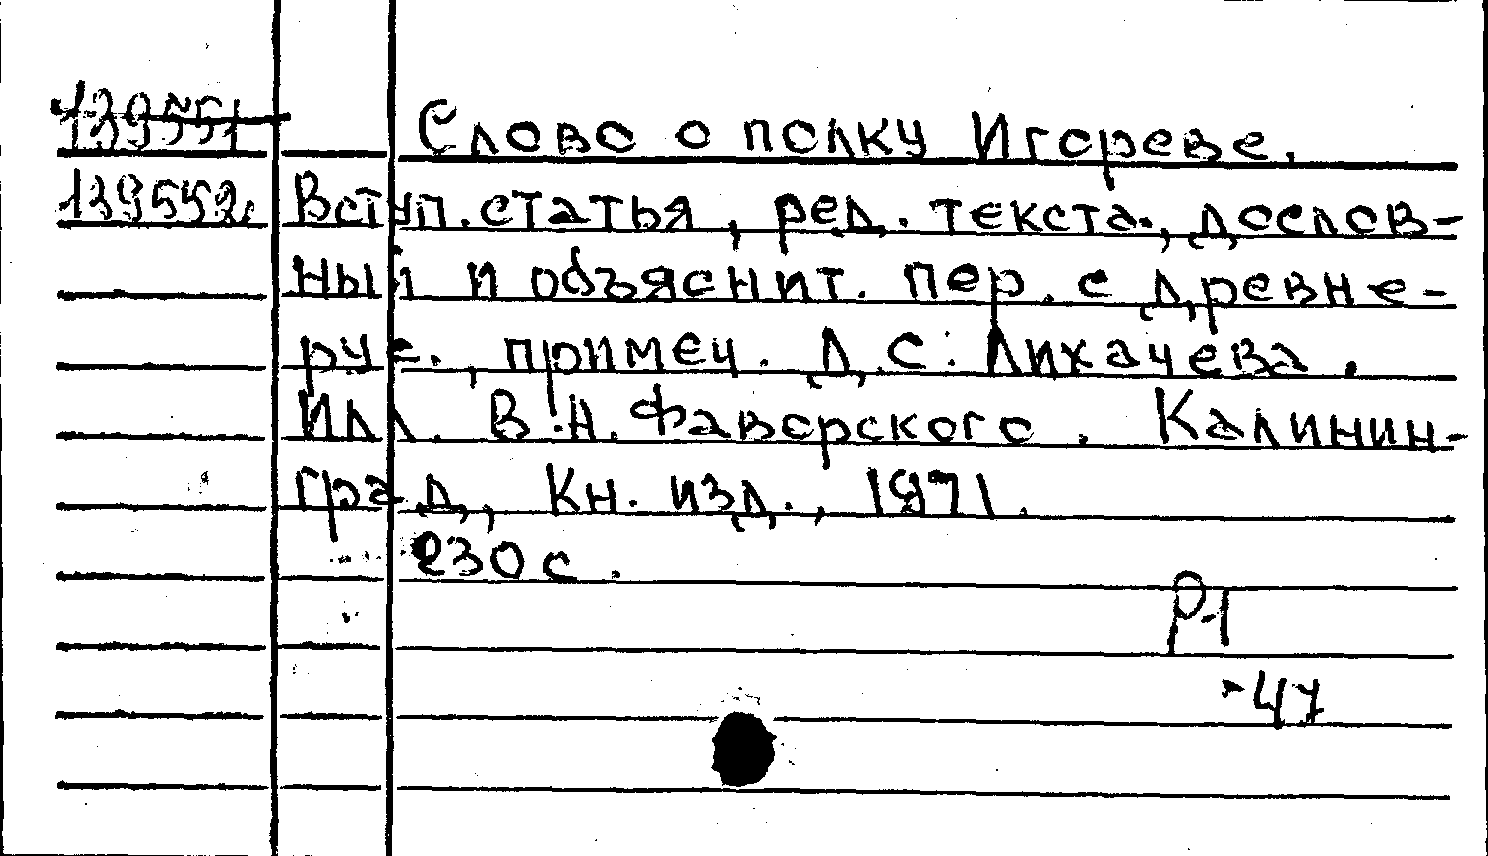 139551 Слово о полку Игореве.
139552 Вступ. статья, ред. текста, дослов-
ный и объяснит. пер. с древне-
рус., примеч. Д.С. Лихачева.
Илл. В.Н. Фаворского. Калинин-
град, Кн. изд., 1971.
230 с.
Р-1